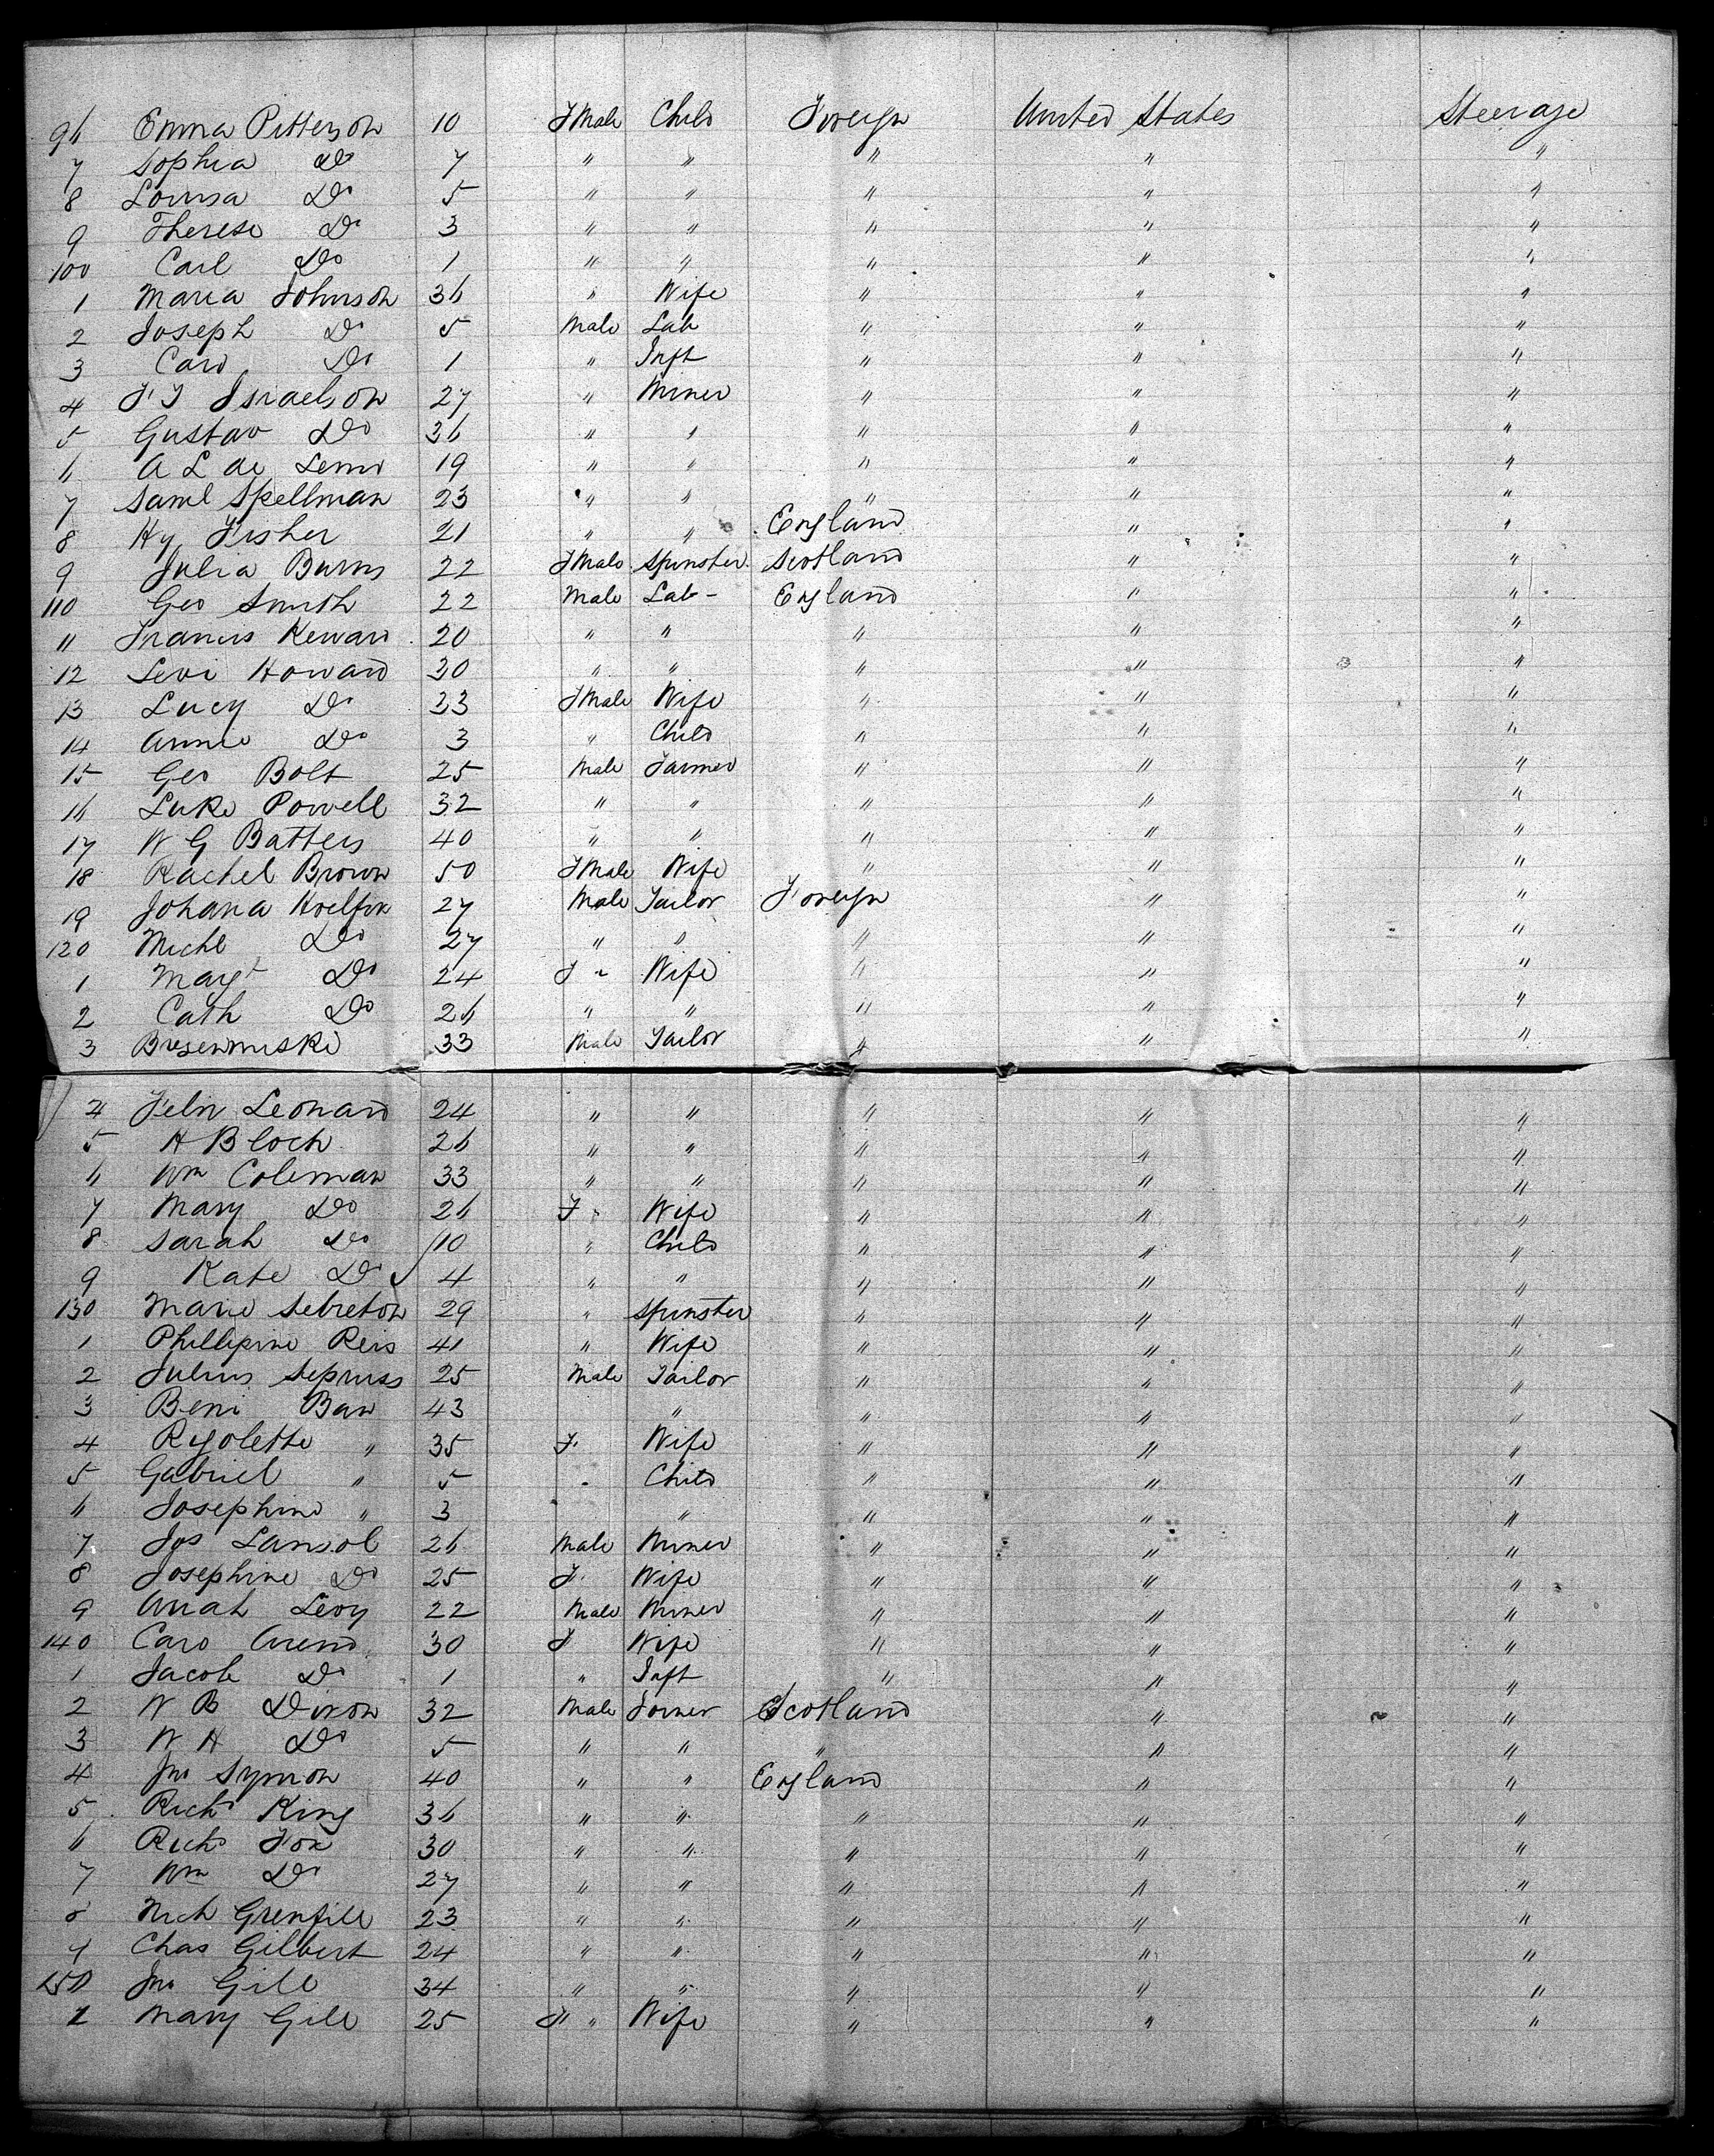 96 Emma Petterson 10 FMale Child Foreign United States Steerage
7 Sophia Do 7 " " " " "
8 Louisa Do 5 " " " " "
9 Therese Do 3 " " " " "
100 Carl Do 1 " " " " "
1 Maria Johnson 36 " Wife " " "
2 Joseph Do 5 Male Lab " " "
3 Caro Do 1 " Inft " " "
4 F J Israelson 27 " Miner " " "
5 Gustav Do 36 " " " " "
6 A L de 19 " " " " "
7 Saml Spellman 23 " " " " "
8 Hy Fisher 21 " " England " "
9 Julia Burns 22 FMale Spinster Scotland " "
110 Geo Smith 22 Male Lab - England " "
11 Francis 20 " " " " "
12 Levi Howard 30 " " " " "
13 Lucy Do 33 FMale Wife " " "
14 Annie Do 3 " Child " " "
15 Geo Bolt 25 Male Farmer " " "
16 Luke Powell 32 " " " " "
17 W G Batters 40 " " " " "
18 Rachel Brown 50 FMale Wife " " "
19 Johana 27 Male Tailor Foreign " "
120 Michl Do 27 " " " " "
1 Margt Do 24 F " Wife " " "
2 Cath Do 26 " " " " "
3 33 Male Tailor " " "
4 Felix Leonard 24 " " " " "
5 H Bloch 26 " " " " "
6 Wm Coleman 33 " " " " "
7 Mary Do 26 F " Wife " " "
8 Sarah Do 10 " Child " " "
9 Kate Do 4 " " " " "
130 Marie Lebreton 29 " Spinster " " "
1 Phillipine Reis 41 " Wife " " "
2 Julius 25 Male Tailor " " "
3 Beni Baw 43 " " " "
4 Rigolette " 35 F. Wife " " "
5 Gabriel " 5 " Child " " "
6 Josephine " 3 " " " "
7 Jos Lansol 26 Male Miner " " "
8 Josephine Do 25 F. Wife " " "
9 Levy 22 Male Miner " " "
140 Caro Arend 30 F Wife " " "
1 Jacob Do 1 " Inft " " "
2 W B Dixon 32 Male Joiner Scotland " "
3 W H Do 5 " " " " "
4 Jno Symon 40 " " England " "
5 Richd King 36 " " " " "
6 Richd Fox 30 " " " " "
7 Wm Do 27 " " " " "
8 Nich Grenfill 23 " " " " "
9 Chas Gilbert 24 " " " " "
150 Jno Gill 34 " " " " "
1 Mary Gill 25 F " Wife " " "